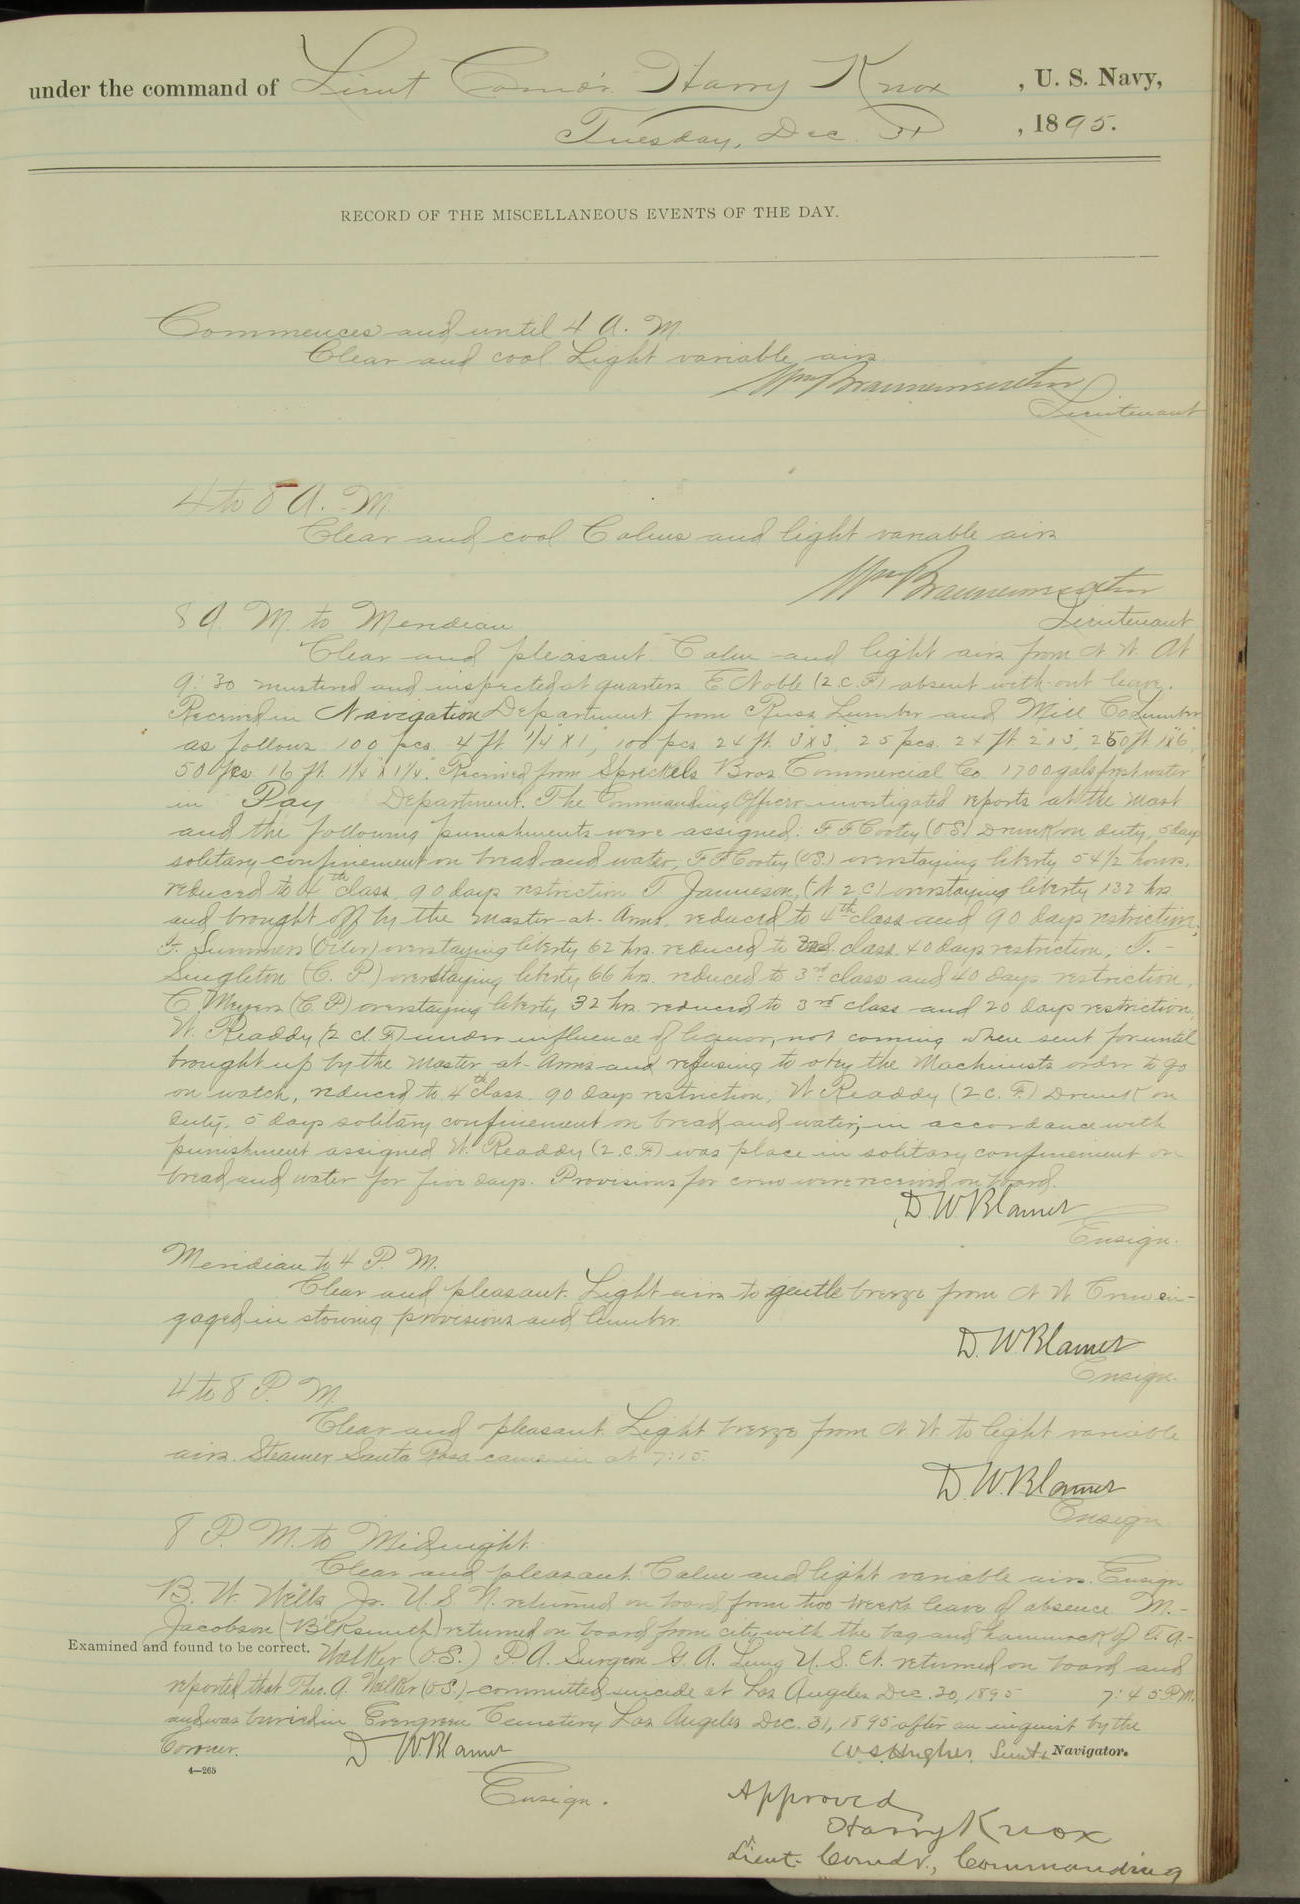 under the command of Lieut Comd'r Harry Knox, U. S. Navy,
Tuesday, Dec. 31, 1895.
RECORD OF THE MISCELLANEOUS EVENTS OF THE DAY.
Commences and until 4 A. M.
Clear and cool Light variable airs
Wm Braunersreuther
Lieutenant
4 to 8 A. M.
Clear and cool Calms and light variable airs
Wm Braunersreuther
Lieutenant
8 A. M. to Meridian
Clear and pleasant. Calm and light airs from N W. At
9:30 mustered and inspected at quarters E Noble (2. c. F.) absent with-out leave.
Received in Navigation Department from Russ Lumber and Mill Co lumber
as follows 100 pcs. 4 ft 1/4" x 1", 100 pcs 24 ft. 3" x 3", 25 pcs. 24 ft. 2" x 3", 250 ft 1x6",
50 pcs 16 ft. 1 1/4" x 1 1/4". Received from Spreckels Bros. Commercial Co. 1700 gals fresh water
in Pay Department. The Commanding Officer investigated reports at the mast
and the following punishments were assigned. F. F Cooley (O S.) Drunk on duty, 5 days
solitary confinement on bread and water, F F Cooley (OS.) overstaying liberty 54 1/2 hours,
reduced to 4th class, 90 days restriction T. Jamieson, (N 2 C) overstaying liberty 132 hrs
and brought off by the Master-at-Arms, reduced to 4th class and 90 days restriction;
Summers (Oiler) overstaying liberty 62 hrs. reduced to 3rd. class 40 days restriction, T. -
Singleton (C. P.) overstaying liberty 66 hrs. reduced to 3rd class and 40 days restriction,
C Meyers (C. P.) overstaying liberty 32 hrs reduced to 3rd class and 20 days restriction,
W. Readdy (2 cl. F.) under influence of liquor, not coming when sent for until
brought up by the Master-at-Arms and refusing to obey the Machinists order to go
on watch, reduced to 4th class 90 days restriction; W Readdy (2 C. F.) Drunk on
duty, 5 days solitary confinement on bread and water; in accordance with
punishment assigned W. Readdy (2. C. F) was place in solitary confinement on
bread and water for five days. Provisions for crew were received on board.
D. W Blamer
Ensign.
Meridian to 4 P. M.
Clear and pleasant. Light airs to gentle breeze from N W. Crew en-
gaged in stowing provisions and lumber.
D. W Blamer
Ensign.
4 to 8 P. M.
Clear and pleasant. Light breeze from N W. to light variable
airs. Steamer Santa Rosa came in at 7:15.
D. W. Blamer
Ensign
8 P. M. to Midnight.
Clear and pleasant. Calm and light variable airs. Ensign
B. W. Wells Jr. U. S. N. returned on board from two weeks leave of absence. M. -
Jacobson (Blksmith) returned on board from city with the bag and hammock of T. A. -
Examined and found to be correct. Walker (O S.) P. A. Surgeon G. A. Lung U. S. N. returned on board and
reported that Thos. A. Walker (O S.) committed suicide at Los Angeles Dec. 30, 1895 7:45 P M.
and was buried in Evergreen Cemetery Los Angeles Dec. 31, 1895 after an inquest by the
Coroner. D W Blamer W. S. Hughes, Lieut. Navigator.
4—265
Ensign.
Approved
Harry Knox
Lieut. Comdr., Commanding